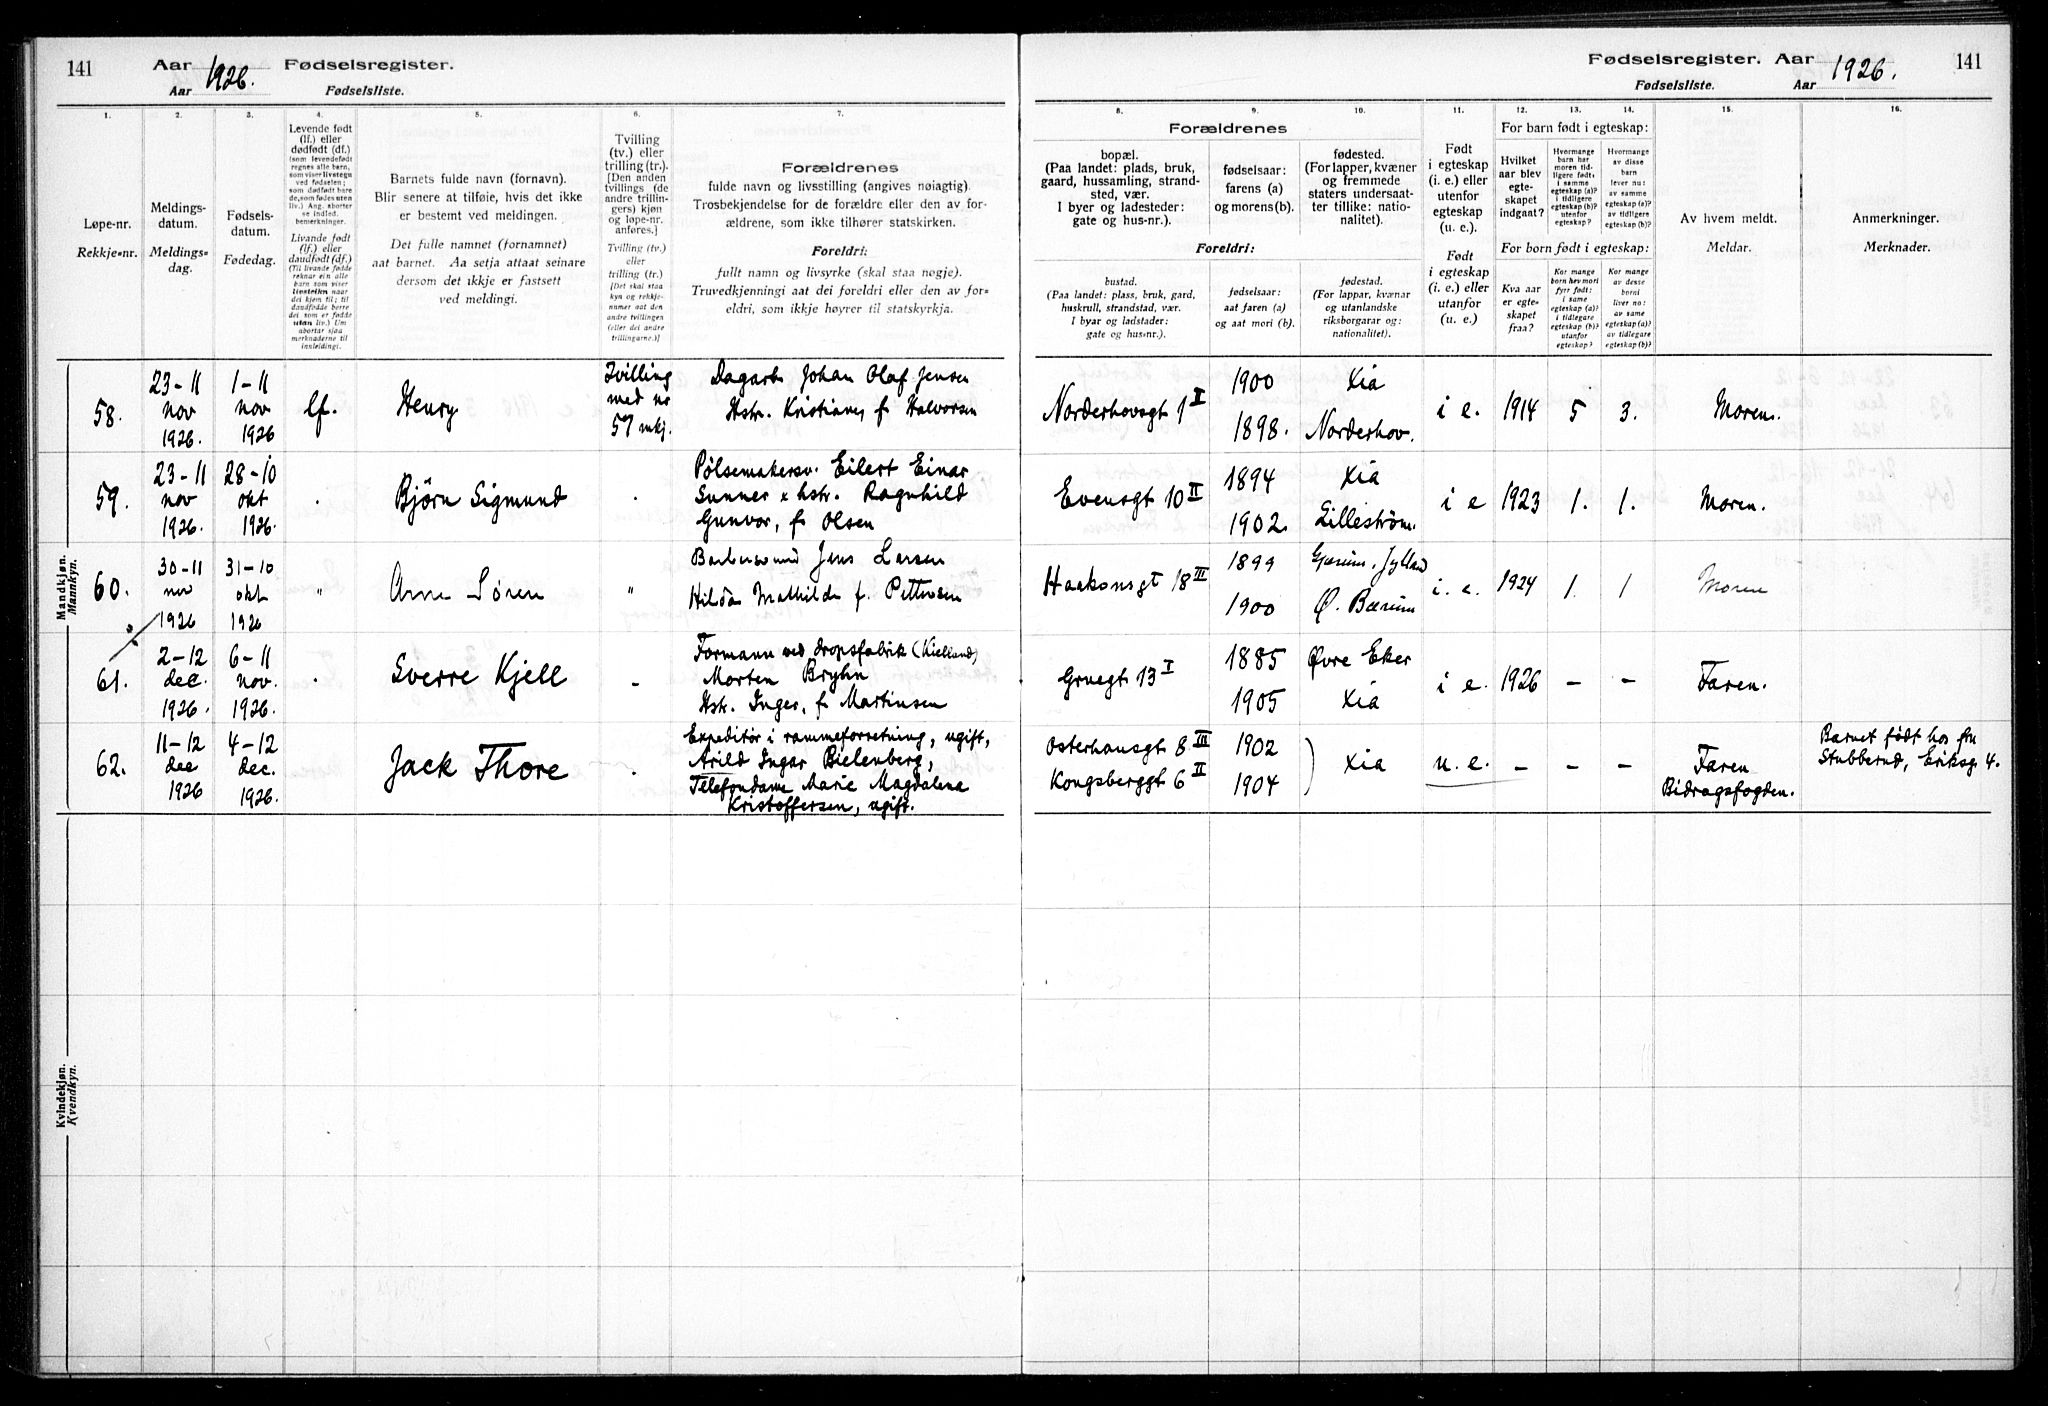 141 Aar 1926. Fødselsregister.
Aar Fødselsliste.
Fødselsregister. Aar 1926. 141
Fødselsliste. Aar
1. 2. 3. 4. 5. 6. 7.
Løpe-nr.
Rekkje-nr.
Meldings-
datum.
Meldings-
dag.
Fødsels-
datum.
Fødedag.
Levende født
(lf.) eller
dødfødt (df.)
(som levendefødt
regnes alle barn,
som viser livstegn
ved fødselen;
som dødfødt bare
de, som fødes uten
liv.) Ang. aborter
se indled.
bemerkninger.
Livande født
(lf.) eller
daudfødt (df.)
(Til livande fødde
reknar ein alle
barn som viser
livsteikn naar
dei kjem til; til
daudfødde berre
dei som er fødde
utan liv.) Um
abortar sjaa
merknaderne til
innleidingi.
Barnets fulde navn (fornavn).
Blir senere at tilføie, hvis det ikke
er bestemt ved meldingen.
Det fulle namnet (fornamnet)
aat barnet. Aa setja attaat seinare
dersom det ikkje er fastsett
ved meldingi.
Tvilling
(tv.) eller
trilling (tr.).
[Den anden
tvillings (de
andre trillin-
gers) kjøn
og løpe-nr.
anføres.]
Tvilling (tv.)
eller
trilling (tr.)
[Det skal staa
kyn og rekkje-
nummer aat den
andre tvillingen
(eller dei andre
trillingarne.)]
Forældrenes
fulde navn og livsstilling (angives nøiagtig).
Trosbekjendelse for de forældre eller den av for-
ældrene, som ikke tilhører statskirken.
Foreldri:
fullt namn og livsyrke (skal staa nøgje).
Truvedkjenningi aat dei foreldri eller den av for-
eldri, som ikkje høyrer til statskyrkja.
8. 9. 10. 11. 12. 13. 14. 15. 16.
Forældrenes
bopæl.
(Paa landet: plads, bruk,
gaard, hussamling, strand-
sted, vær.
I byer og ladesteder:
gate og hus-nr.).
Foreldri:
bustad.
(Paa landet: plass, bruk, gard,
huskrull, strandstad, vær.
I byar og ladstader:
gate og hus-nr.).
fødselsaar:
farens (a)
og morens (b).
fødselsaar:
aat faren (a)
og aat mori (b).
fødested.
(For lapper, kvæner
og fremmede
staters undersaat-
ter tillike: natio-
nalitet).
fødestad.
(For lappar, kvænar
og utanlandske
riksborgarar og:
nationalitet).
Født
i egteskap
(i. e.) eller
utenfor
egteskap
(u. e.).
Født
i egteskap
(i. e.) eller
utanfor
(u. e.).
For barn født i egteskap:
Hvilket
aar blev
egte-
skapet
indgaat?
Hvormange
barn har
moren tid-
ligere født,
i samme
egteskap (a)?
utenfor
egteskap?
Hvormange
av disse
barn
lever nu:
av samme
egteskap (a)?
av tidligere
egteskap (b)?
For born født i egteskap:
Kva aar
er egte-
skapet
fraa?
Kor mange
born hev mori
fyrr født:
i same
egteskap (a)?
i tidlegare
egteskap (b)?
utanfor
egteskap?
Kor mange
av desse
borni
liver no:
av same
egteskap (a)?
av tidlegare
egteskap (b)?
Av hvem meldt.
Meldar.
Anmerkninger.
Merknader.
Mandkjøn.
Mannkyn.
58. 23-11 nov 1926. 1-11 nov 1926 lf. Henry Tvilling med nr 57 mkj.
Dagarb. Johan Olaf Jensen
Hstr. Kristiane, f. Halvorsen
Norderhovsgt 1 II 1900 Xia i e. 1914 5 3. Moren.
1898. Norderhov.
59. 23-11 nov 1926. 28-10 okt 1926. Bjørn Sigmund
Pølsemakersv. Eilert Einar
Sunner x hstr. Ragnhild
Gunvor, f. Olsen
Evensgt 10 II 1894 Xia i e 1923 1. 1. Moren.
1902. Lilleström.
60. 30-11 nov 1926 31-10 okt 1926 " Arne Sören "
Jens Larsen
Hilda Mathilde f. Pettersen
Haakonsgt 18 III 1899 Jylland i. e. 1924 1. 1 Moren
1900 Ø. Bærum
61. 2-12 dec. 1926. 6-11 nov. 1926. Sverre Kjell
Formann ved dropsfabrik (Kielland)
Morten Bryhn
Hstr. Inger, f. Martinsen
Gruegt 13 I 1885 Øvre Eker i e. 1926 - - Faren.
1905 Xia
62. 11-12 dec 1926 4-12 dec. 1926. Jack Thore
Expeditör i rammeforretning, ugift,
Arild Ingar Bielenberg,
Telefondame Marie Magdalena
Kristoffersen, ugift.
Osterhausgt 8 III 1902 Xia u. e. - - - Faren
Kongsberggt 6 II 1904 Bidragsfogden.
Barnet født hos fru
Stubberud, Eriksg. 4.
Kvindekjøn.
Kvendkyn.